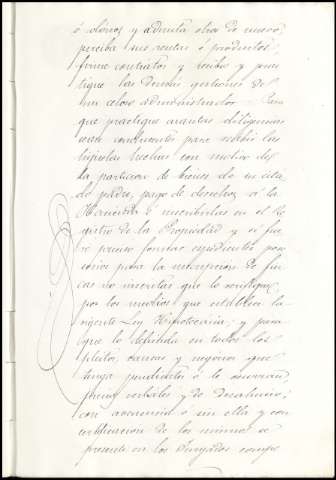 ó colonos y admita otros de nuevo,
perciba sus rentas ó productos,
firme contratos y recibos y prac-
tique las demás gestiones de
un celoso administrador. Para
que practique cuantas diligencias
sean conducentes para
hijuelas hechas con motivo de
la particion de bienes de su cita-
do padre, pago de derechos á la
Hacienda é inscribirlas en el Re-
gistro de la Propiedad y si fue-
re preciso formar espedientes pose-
sorios para la inscripcion de fin-
cas no inscritas que lo verifique
por los medios que establece la
vigente Ley Hipotecaria; y para
que lo defienda en todos los
pleitos, causas y negocios que
tenga pendientes ó le ocurran,
juicios verbales y de desahucio;
con avenencia ó sin ella y con
certificacion de los mismos se
presente en los Juzgados compe-